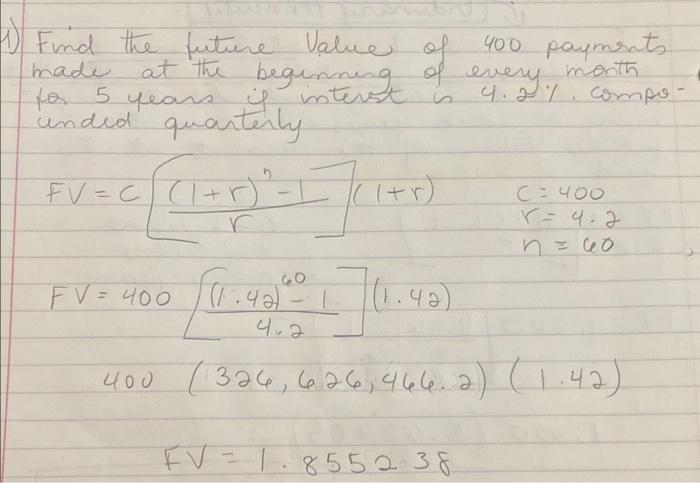 1) Find the future Value of 400 payments
made at the beginning of every month
for 5 years if interest is 4.2%. compo-
unded quarterly
FV = C [ (1+r)^n - 1 / r ] (1+r)
C = 400
r = 4.2
n = 60
FV = 400 [ (1.42)^60 - 1 / 4.2 ] (1.42)
400 (326,626,466.2) (1.42)
FV = 1.855238